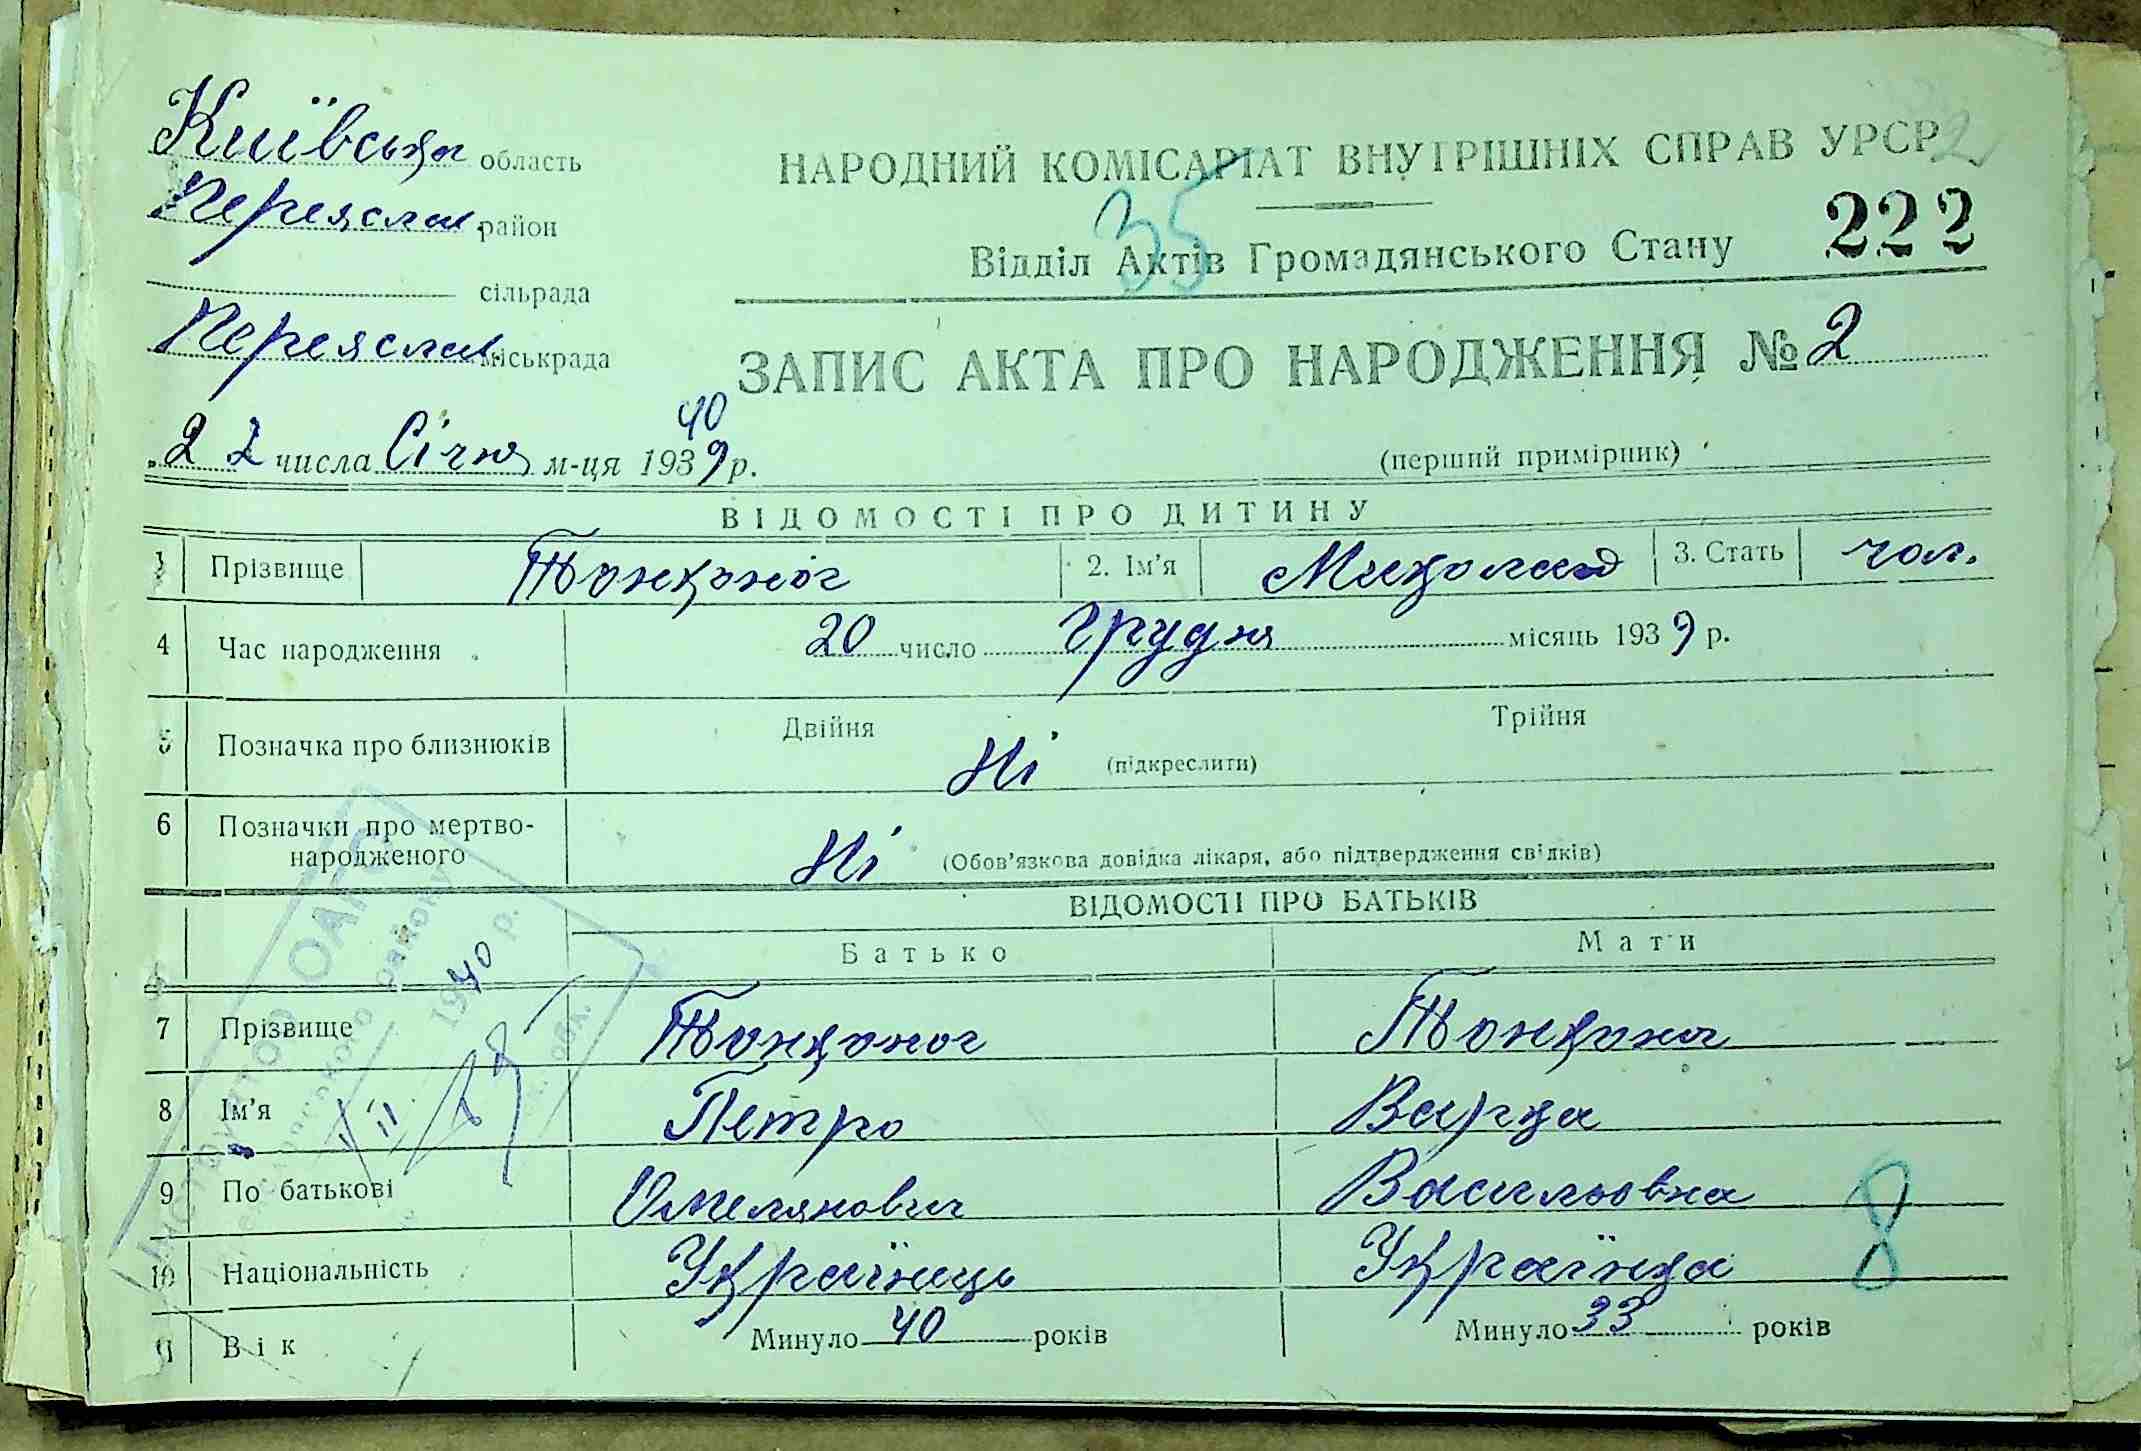 Київська область
Переяслав. район
сільрада
Переяслав. міськрада
НАРОДНИЙ КОМІСАРІАТ ВНУТРІШНІХ СПРАВ УРСР
35
Відділ Актів Громадянського Стану
222
ЗАПИС АКТА ПРО НАРОДЖЕННЯ № 2
40
22 числа Січня м-ця 1939 р.
(перший примірник)
ВІДОМОСТІ ПРО ДИТИНУ
1 Прізвище Тонконог 2. Ім'я Миколай 3. Стать чол.
4 Час народження 20 число Грудня місяць 1939 р.
5 Позначка про близнюків Двійня Ні (підкреслити) Трійня
6 Позначки про мертво-
народженого Ні (Обов'язкова довідка лікаря, або підтвердження свідків)
ВІДОМОСТІ ПРО БАТЬКІВ
Батько Мати
7 Прізвище Тонконог Тонконог
8 Ім'я Петро Варка
9 По батькові Омелянович Васильовна
10 Національність Українець Українка
8
11 Вік Минуло 40 років Минуло 33 років
ОАГС
району
1940 р.
обл.